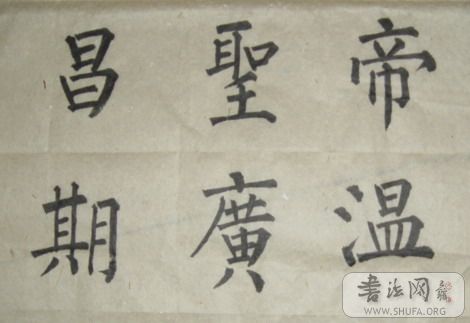 帝温
聖廣
昌期
书法网
WWW.SHUFA.ORG